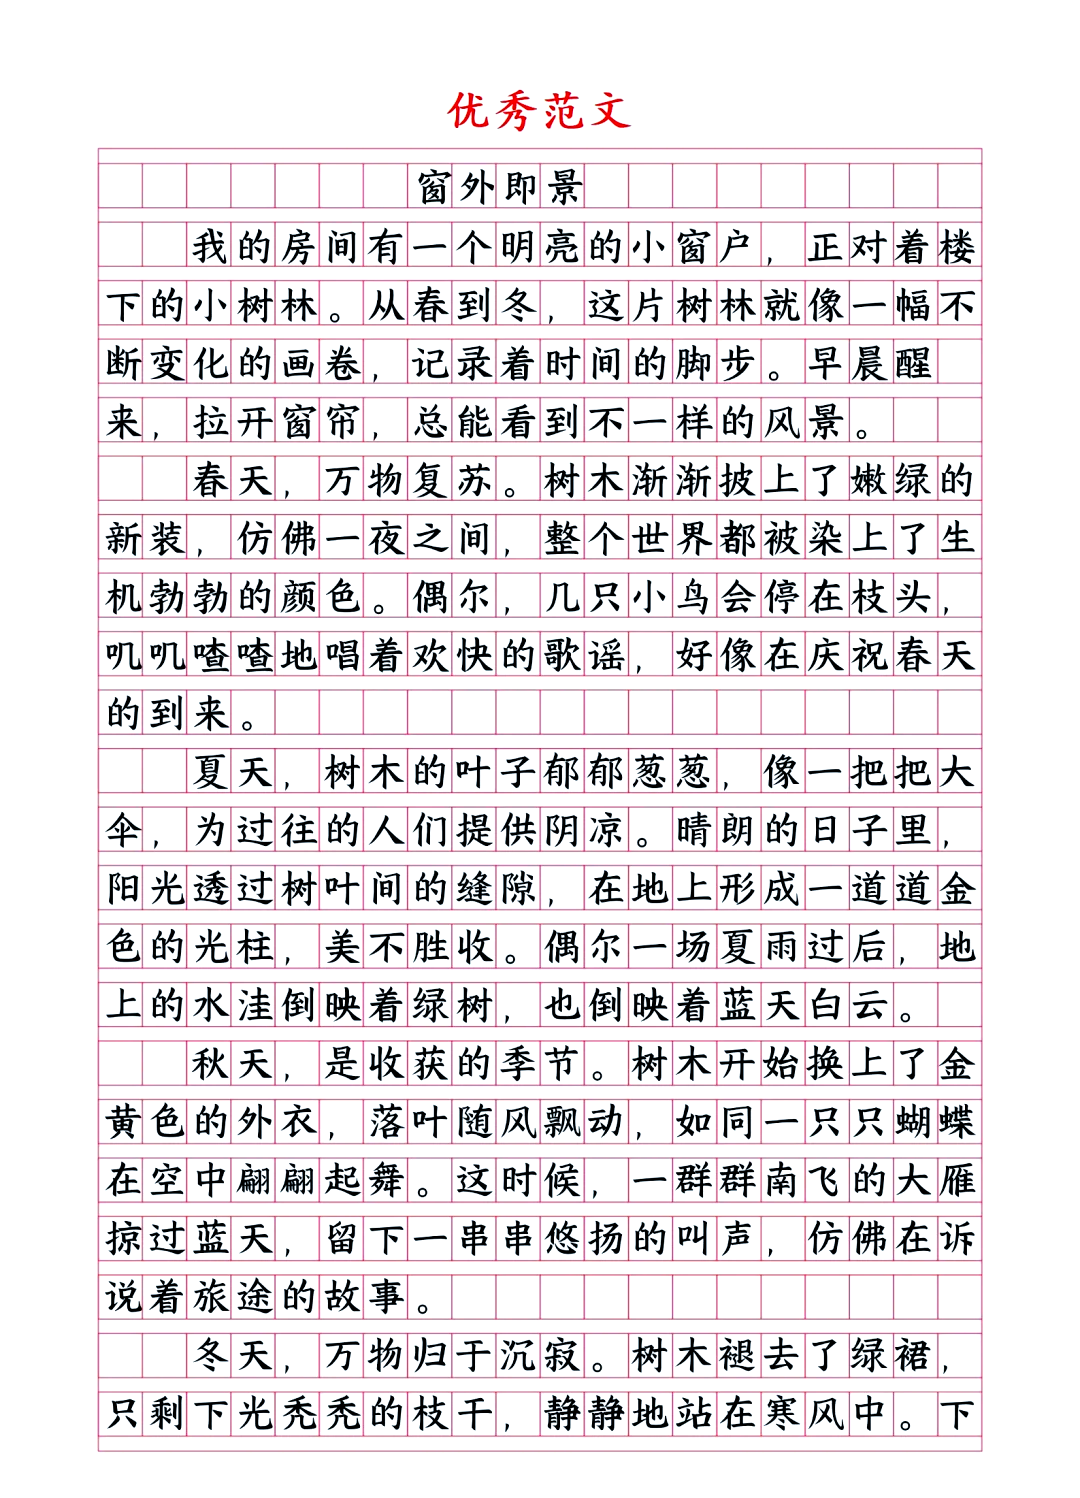 优秀范文
窗外即景
我的房间有一个明亮的小窗户，正对着楼
下的小树林。从春到冬，这片树林就像一幅不
断变化的画卷，记录着时间的脚步。早晨醒
来，拉开窗帘，总能看到不一样的风景。
春天，万物复苏。树木渐渐披上了嫩绿的
新装，仿佛一夜之间，整个世界都被染上了生
机勃勃的颜色。偶尔，几只小鸟会停在枝头，
叽叽喳喳地唱着欢快的歌谣，好像在庆祝春天
的到来。
夏天，树木的叶子郁郁葱葱，像一把把大
伞，为过往的人们提供阴凉。晴朗的日子里，
阳光透过树叶间的缝隙，在地上形成一道道金
色的光柱，美不胜收。偶尔一场夏雨过后，地
上的水洼倒映着绿树，也倒映着蓝天白云。
秋天，是收获的季节。树木开始换上了金
黄色的外衣，落叶随风飘动，如同一只只蝴蝶
在空中翩翩起舞。这时候，一群群南飞的大雁
掠过蓝天，留下一串串悠扬的叫声，仿佛在诉
说着旅途的故事。
冬天，万物归于沉寂。树木褪去了绿裙，
只剩下光秃秃的枝干，静静地站在寒风中。下